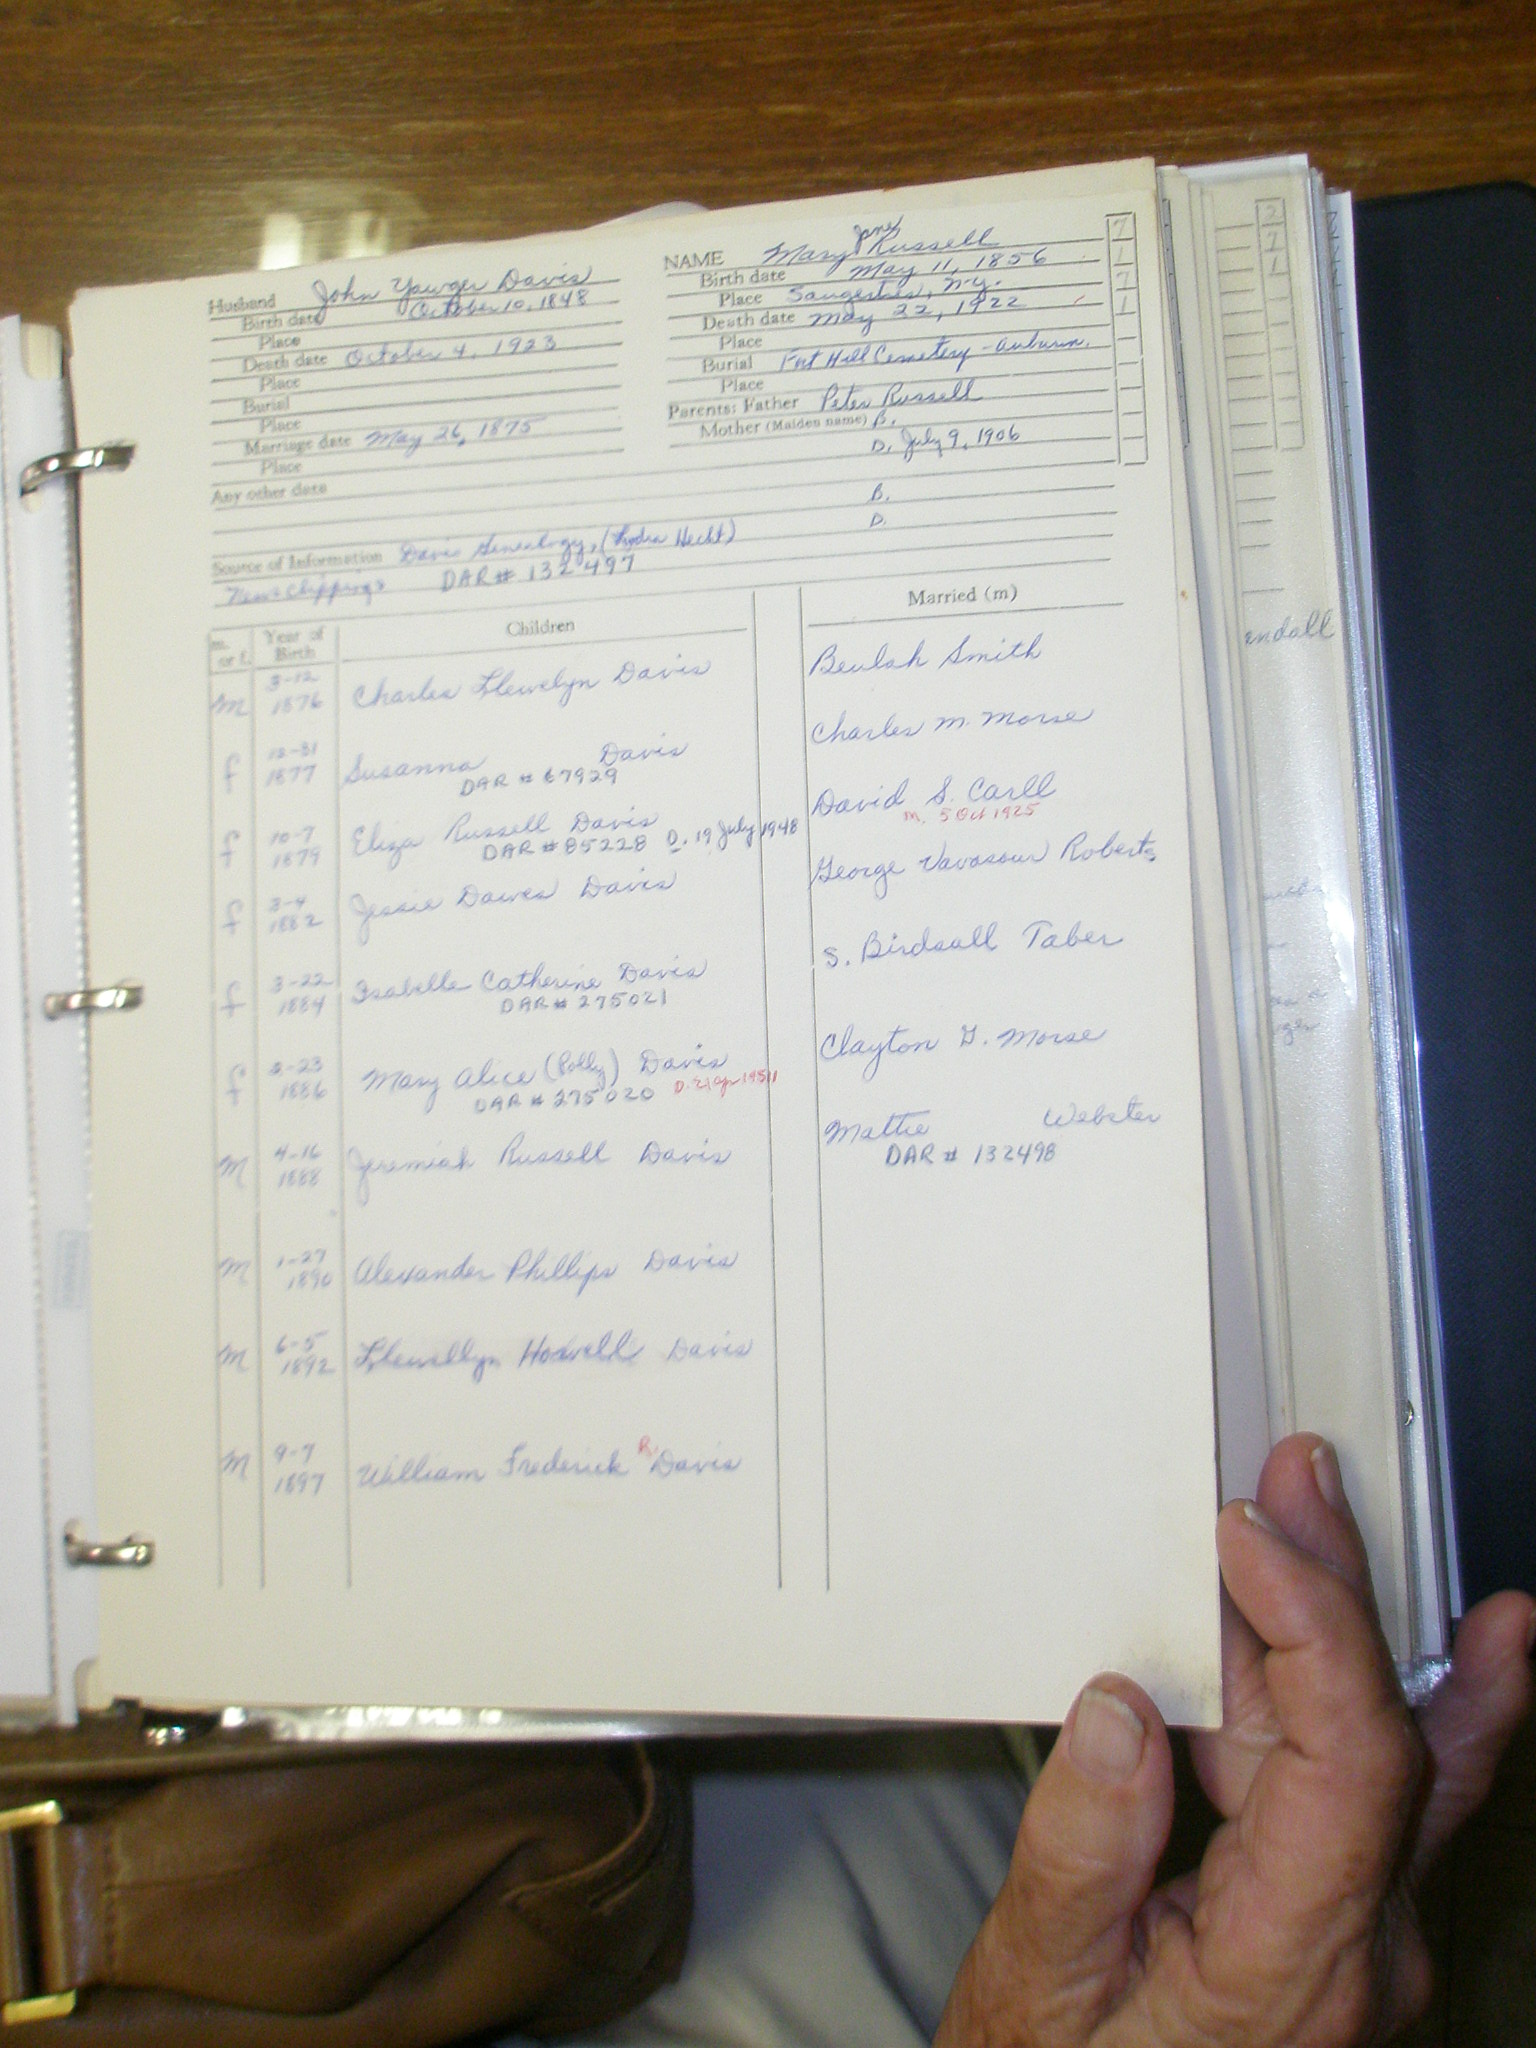 Husband John Yawger Davis
Birth date October 10, 1848
Place
Death date October 4, 1923
Place
Burial
Place
Marriage date May 26, 1875
Place
Any other data
NAME Mary Jane Russell
Birth date May 11, 1856
Place Saugerties, N.Y.
Death date May 22, 1922
Place
Burial Fort Hill Cemetery - Auburn.
Place
Parents: Father Peter Russell
Mother (Maiden name) B.
D. July 9, 1906
B.
D.
7
1
7
1
2
7
1
Source of Information Davis Genealogy, (Lydia Hecht)
News Clippings DAR # 132497
m. or f. Year of Birth Children Married (m)
M 3-12 1876 Charles Llewelyn Davis Beulah Smith
f 12-31 1877 Susanna Davis Charles M. Morse
DAR # 67929
f 10-7 1879 Eliza Russell Davis David S. Carll
DAR # 85228 D. 19 July 1948 m. 5 Oct 1925
f 3-4 1882 Jessie Dawes Davis George Vavasour Roberts
f 3-22 1884 Isabelle Catherine Davis S. Birdsall Taber
DAR # 275021
f 2-23 1886 Mary Alice (Polly) Davis Clayton G. Morse
DAR # 275020 D. 21 Apr
M 4-16 1888 Jeremiah Russell Davis Mattie Webster
DAR # 132498
M 1-27 1890 Alexander Phillips Davis
M 6-5 1892 Llewellyn Howell Davis
M 9-7 1897 William Frederick R. Davis
endall